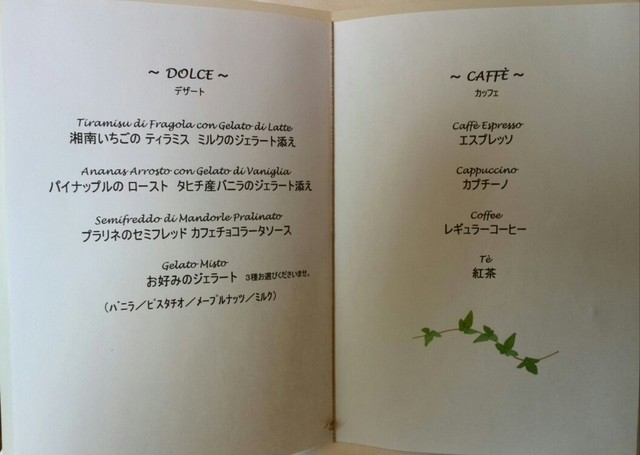 ~ DOLCE ~
デザート
Tiramisu di Fragola con Gelato di Latte
湘南いちごの ティラミス ミルクのジェラート添え
Ananas Arrosto con Gelato di Vaniglia
パイナップルの ロースト タヒチ産バニラのジェラート添え
Semifreddo di Mandorle Pralinato
プラリネのセミフレッド カフェチョコラータソース
Gelato Misto
お好みのジェラート 3種お選びくださいませ。
(バニラ/ピスタチオ/メープルナッツ/ミルク)
~ CAFFÈ ~
カッフェ
Caffè Espresso
エスプレッソ
Cappuccino
カプチーノ
Coffee
レギュラーコーヒー
Tè
紅茶